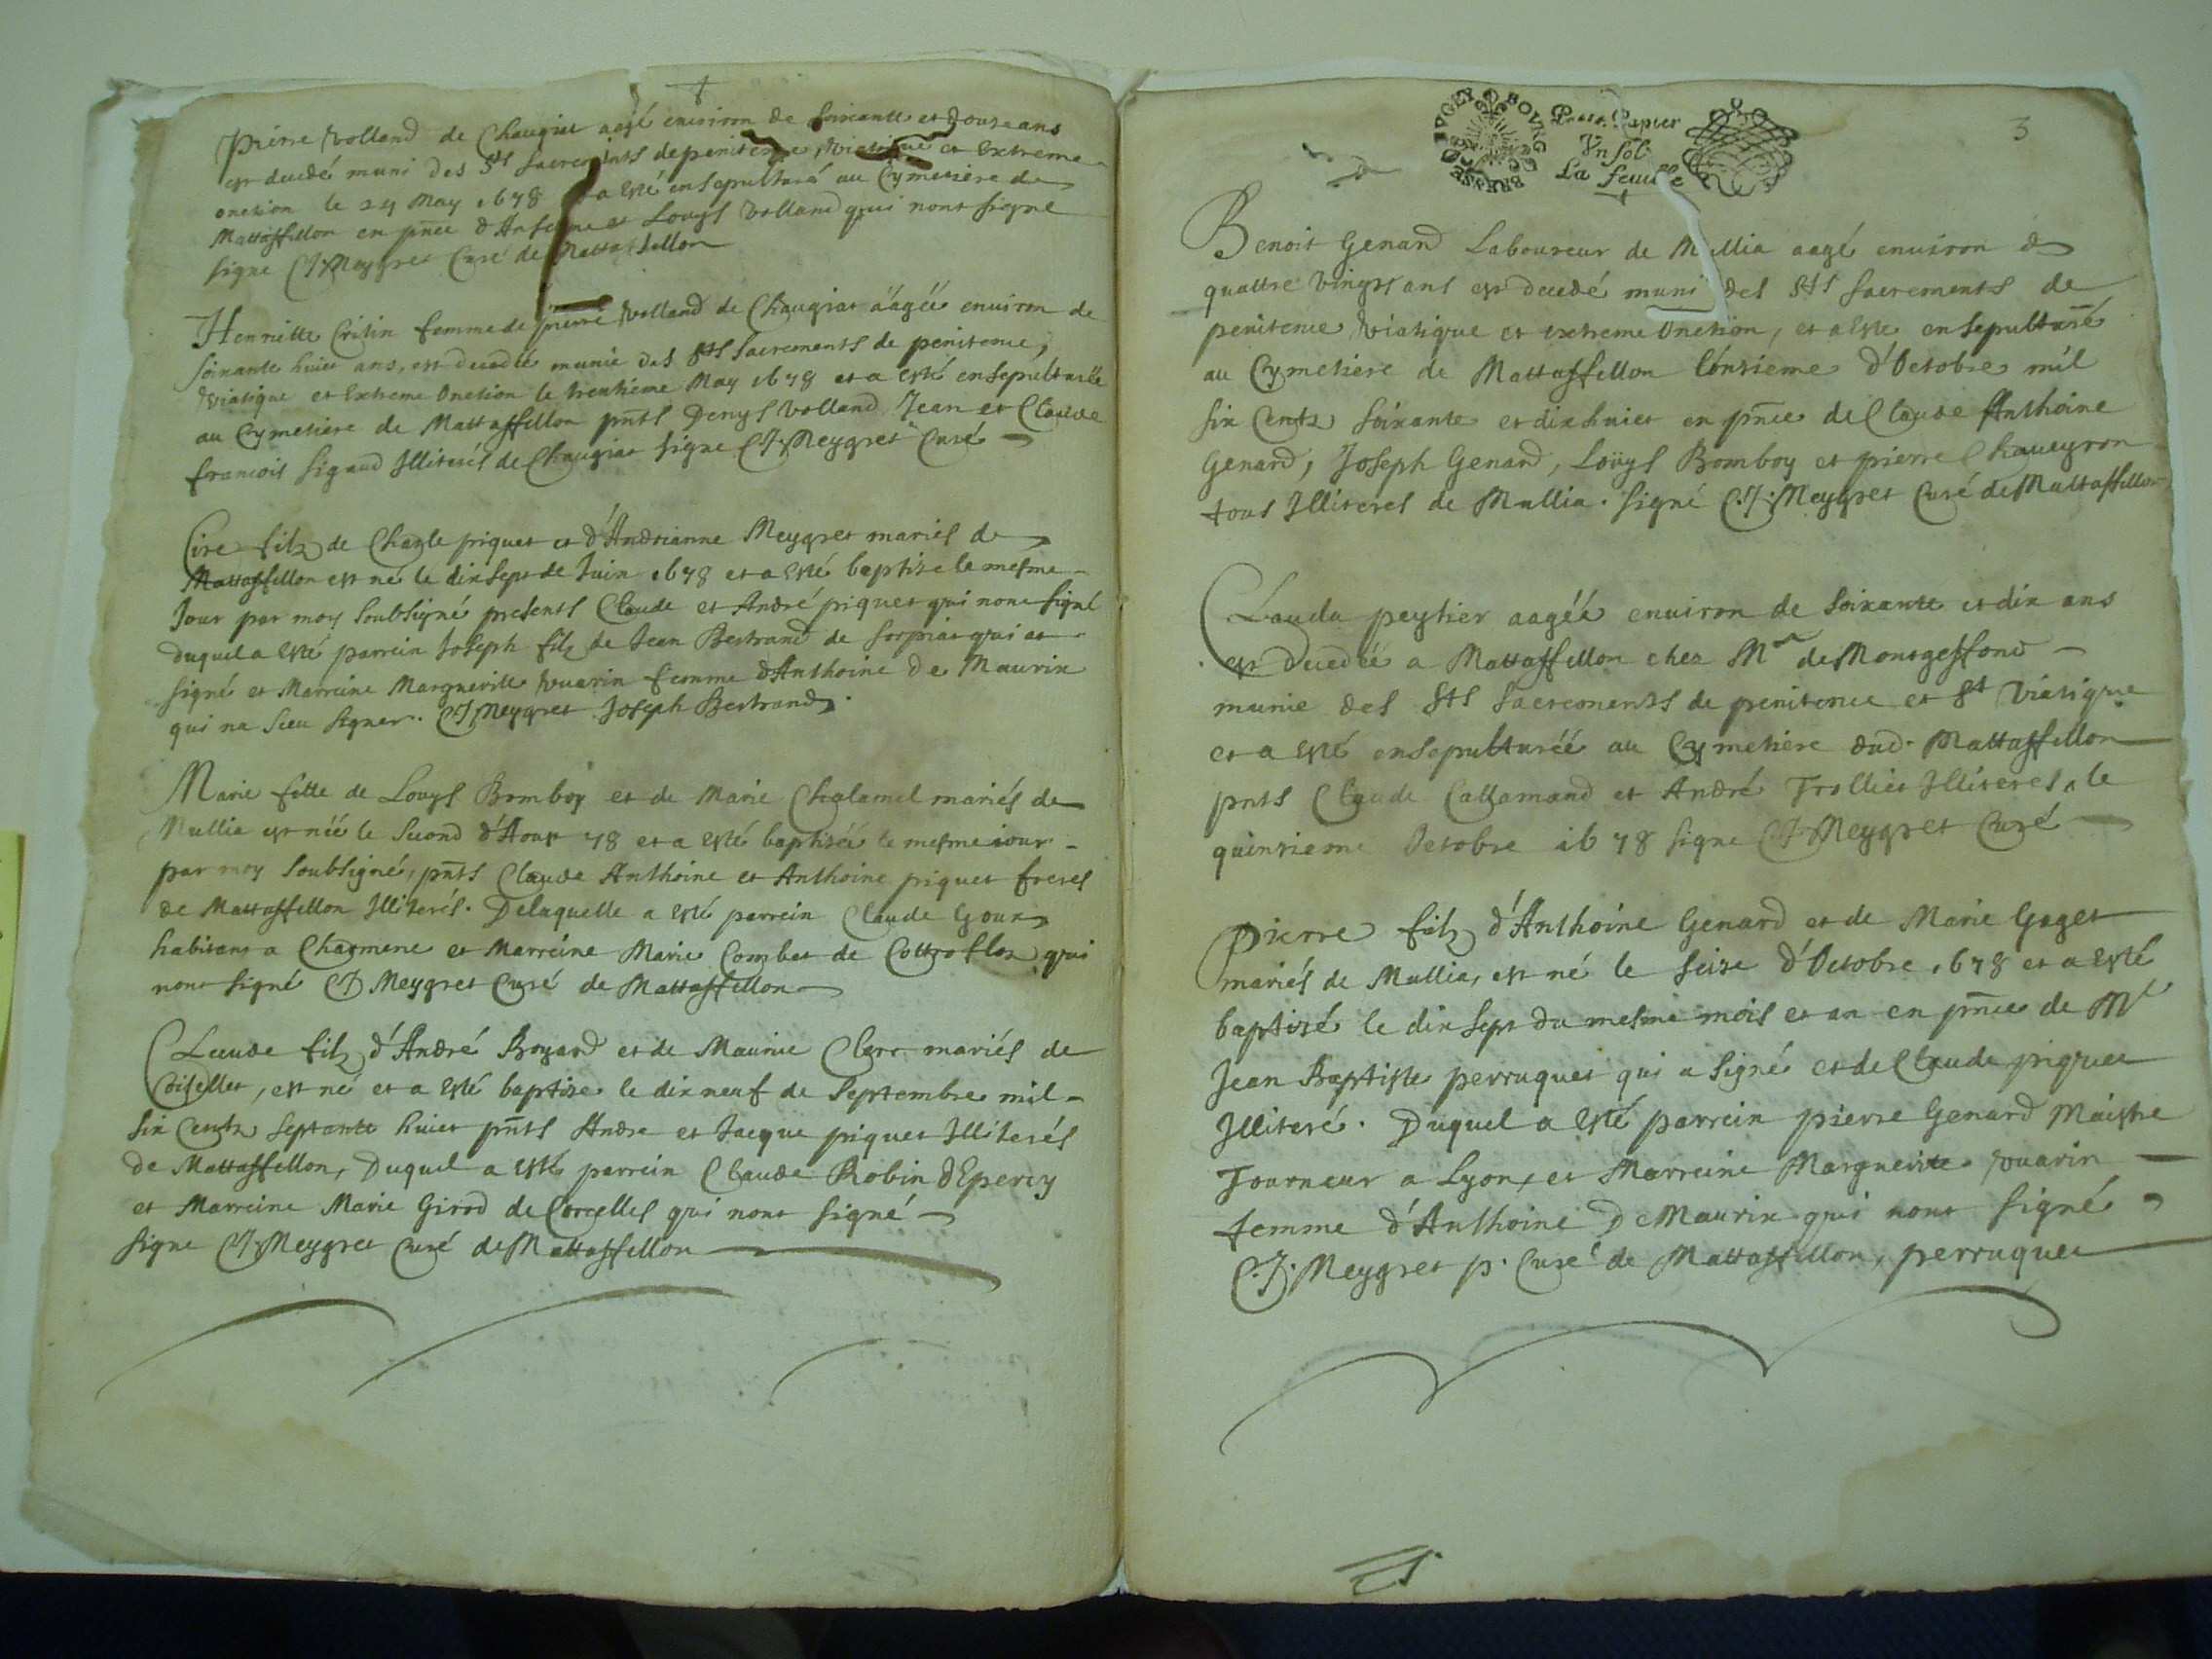 Pierre Volland de Chaugiat aagé enuiron de soixante et douze ans
est decedé muni des Sts Sacrements de penitence, viatique et Extreme
onction le 24 May 1678 et a esté ensepulturé au Cymetiere de
Mattaffellon en pnce d'Anselme et Louys Volland qui nont signe
signe C.J. Meygret Curé de Mattaffellon
Henriette Critin femme de pierre Volland de Chaugiat aagée enuiron de
soixante huict ans, est decedée munie des Sts Sacrements de penitence,
viatique et Extreme Onction le trentieme May 1678 et a esté ensepulturée
au Cymetiere de Mattaffellon pnts Denys Volland Jean et Claude
francois Sigaud Illiterés de Chaugiat signe C.J. Meygret Curé
filz de Charle piquet et d'Andrianne Meygret mariés de
Mattaffellon est né le dix sept de Juin 1678 et a esté baptise le mesme
Jour par moy soubsigné presents Claude et André piquet qui nont signé
duquel a esté parrein Joseph filz de Jean Bertrand de Sorpiat qui at
signé et Marreine Margueritte Vuarin femme d'Anthoine De Maurix
qui na sceu signer. C J Meygret Joseph Bertrand.
Marie fille de Louys Bomboy et de Marie Chalamel mariés de
Mullia est née le second d'Aoust 78 et a esté baptisée le mesme iour
par moy soubsigné, pnts Claude Anthoine et Anthoine piquet freres
de Mattaffellon Illiterés. Delaquelle a esté parrein Claude Goux
habitant a Charmene et Marreine Marie Combet de qui
nont signé C J Meygret Curé de Mattaffellon
Claude filz d'André Boyard et de Maurice Clerc mariés de
Coiselles, est né et a esté baptize le dixneuf de Septembre mil
six Centz septante huict pnts Andre et Jacque piquet Illiterés
de Mattaffellon, Duquel a esté parrein Claude Robin d'Epercy
et Marreine Marie Girod de Corcelles qui nont signé
signe C J Meygret Curé de Mattaffellon
BRESSE BVGEY BOVRG
Papier
Vn sol
La feuille
3
Benoit Genard Laboureur de Mullia aagé enuiron de
quattre vingts ans est decedé muni des Sts Sacrements de
penitence viatique et extreme Onction, et a esté ensepulturé
au Cymetiere de Mattaffellon l'onzieme d'Octobre mil
six Centz soixante et dixhuict en pnce de Claude Anthoine
Genard, Joseph Genard, Loüys Bomboy et pierre Chaueyron
tous Illiteres de Mullia. signé C.J. Meygret Curé de Mattaffellon
Clauda peytier aagéé enuiron de soixante et dix ans
est decedéé a Mattaffellon chez Mr de Montgeffond
munie des Sts Sacrements de penitence et St Viatique
et a esté ensepulturéé au Cymetiere dud. Mattaffellon
pnts Claude Callamand et André Trollier Illiteres, le
quinzieme Octobre 1678 signe C J Meygret Curé
Pierre filz d'Anthoine Genard et de Marie Goget
mariés de Mullia, est né le seize d'Octobre 1678 et a esté
baptizé le dix sept du mesme mois et an en pnce de Mr
Jean Baptiste perruquet qui a signé et de Claude piquet
Illiteré. Duquel a esté parrein pierre Genard Maistre
Tourneur a Lyon, et Marreine Margueritte Vuarin
femme d'Anthoine De Maurix qui nont signé
C.J. Meygret p. Curé de Mattaffellon, perruquet